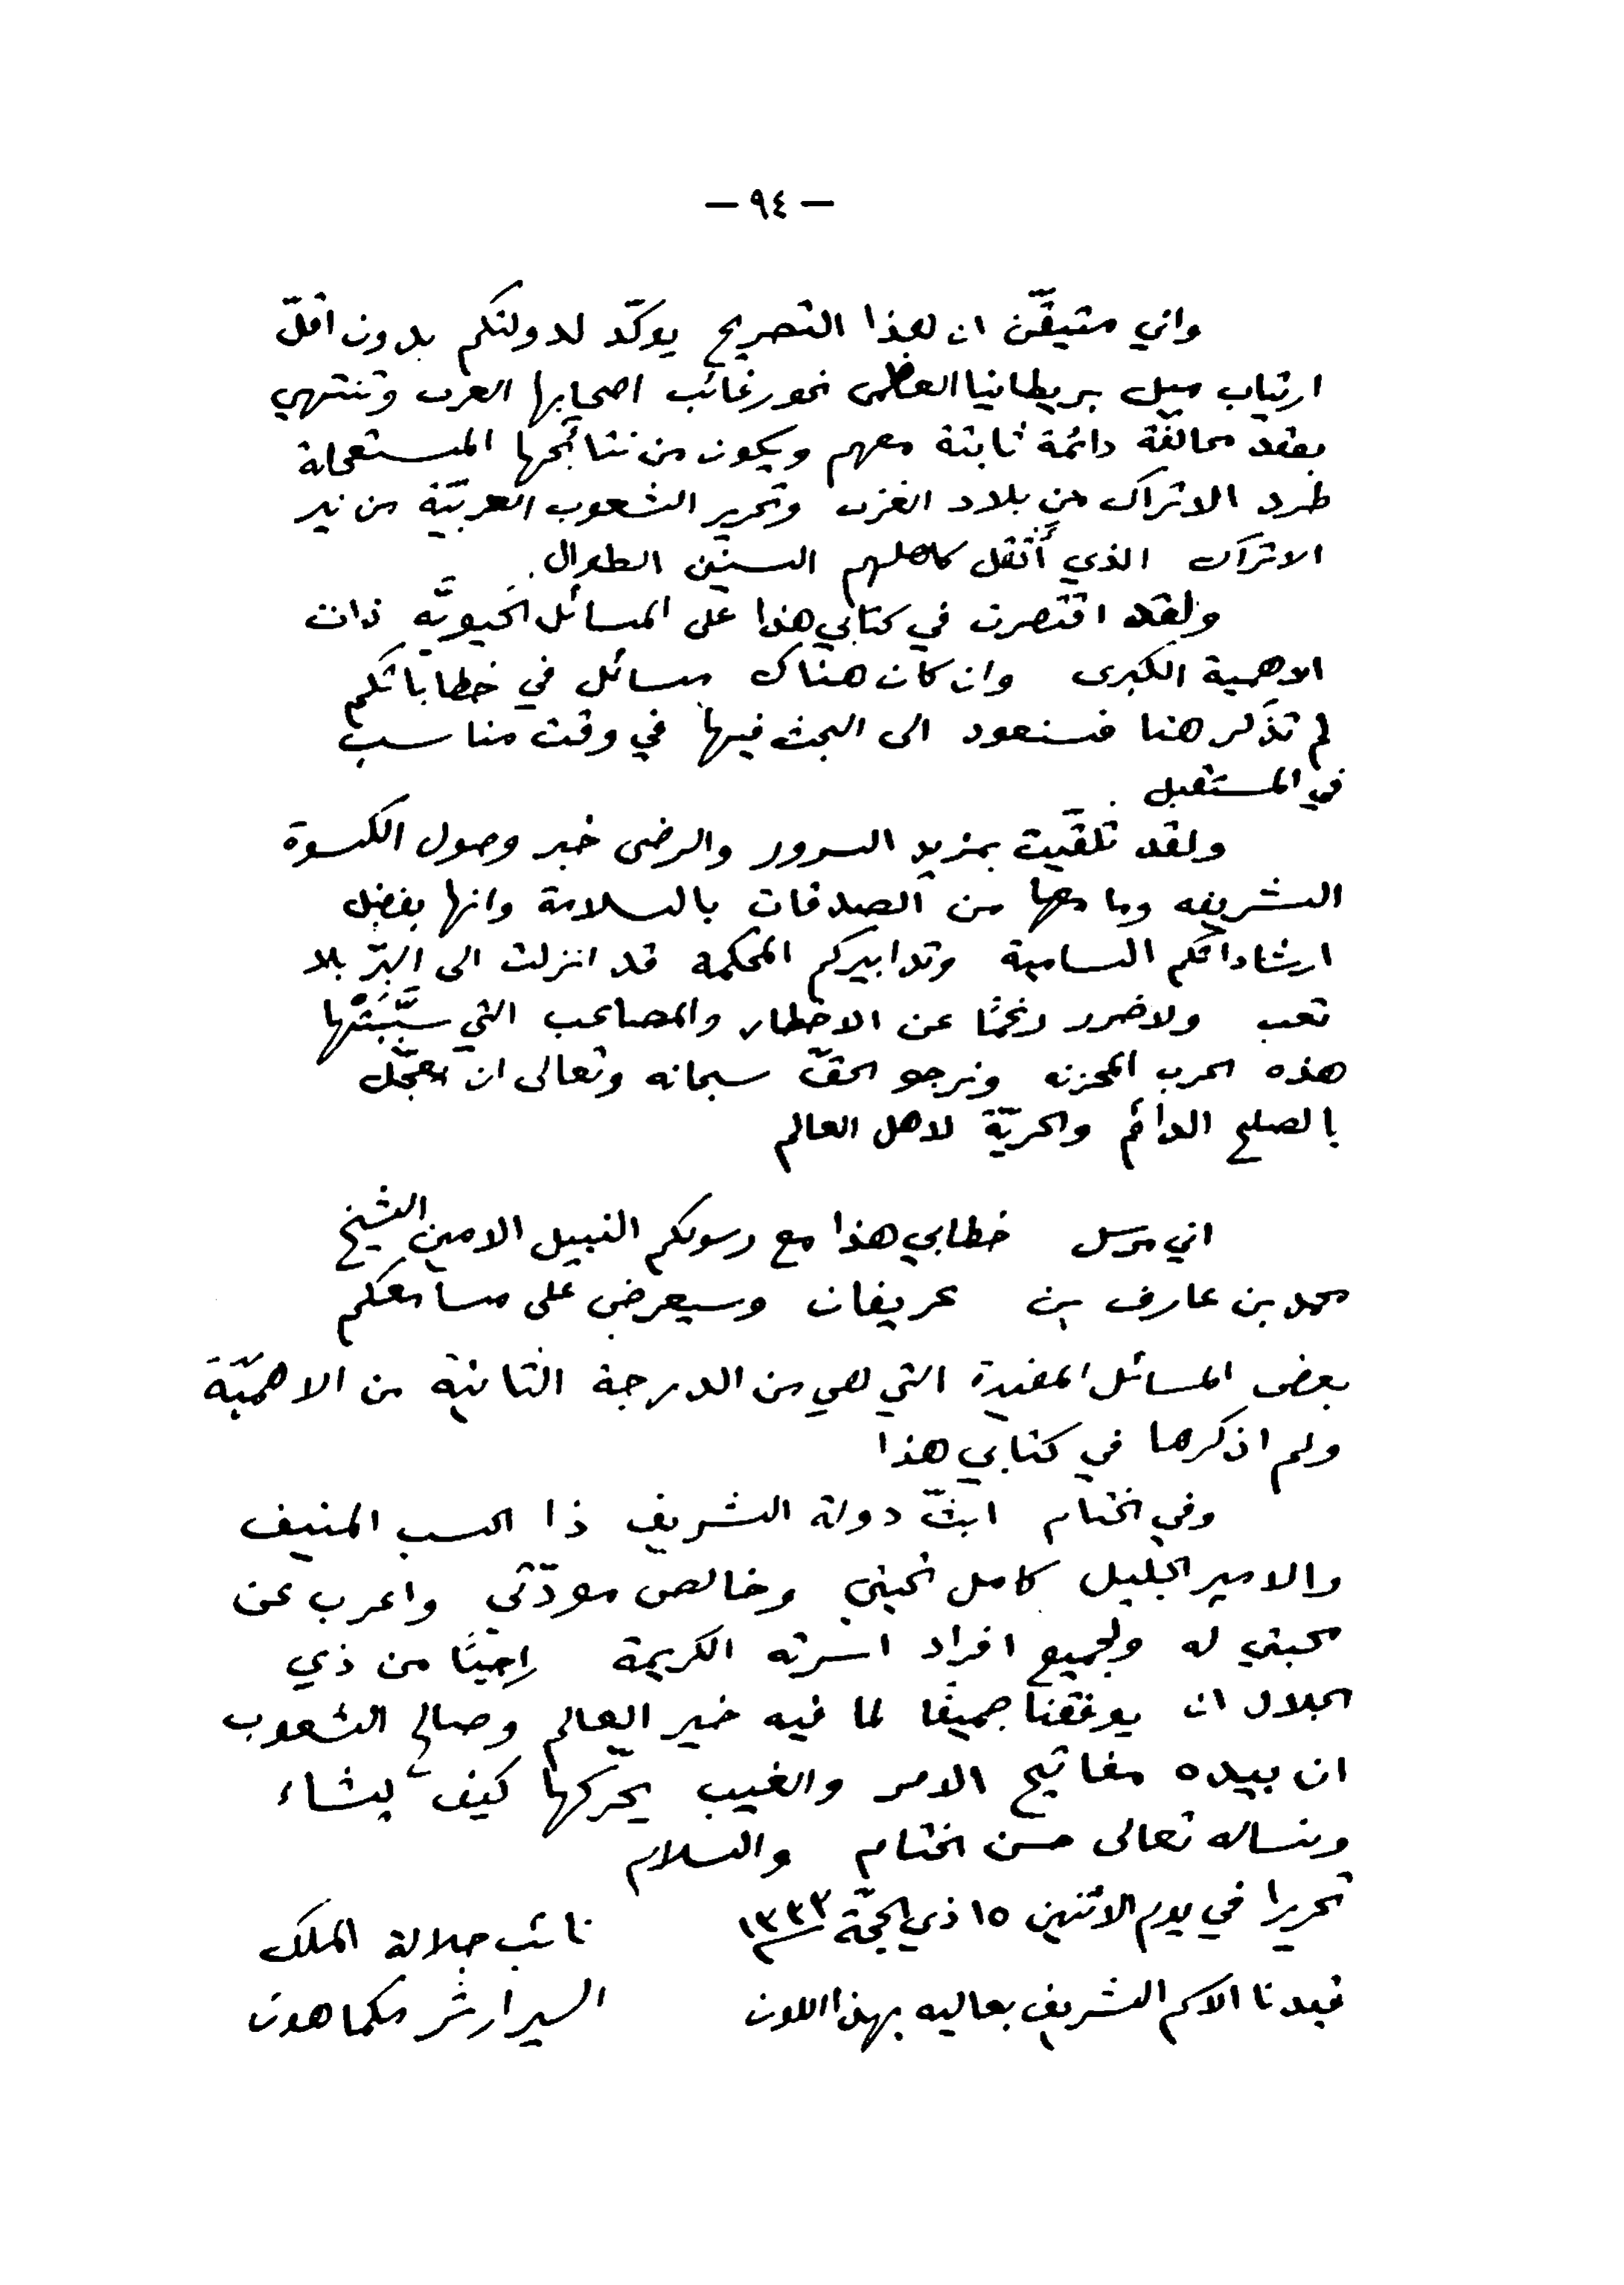 — ٩٤ —
واني متيقّن ان هذا التصريح يوكّد لدولتكم بدون اقلّ
ارتياب ميل بريطانيا العظمى نحو رغائب اصحابها العرب وتنتهي
بعقد محالفة دائمة ثابتة معهم ويكون من نتائجها المستعجلة
طرد الاتراك من بلاد العرب وتحرير الشعوب العربيّة من نير
الاتراك الذي أثقل كاهلهم السنين الطوال.
ولقد اقتصرت في كتابي هذا على المسائل الحيويّه ذات
الاهمية الكبرى وان كان هناك مسائل في خطاباتكم
لم تذكر هنا فسنعود الى البحث فيها في وقت مناسب
في المستقبل .
ولقد تلقيّت بمزيد السرور والرضى خبر وصول الكسوة
الشريفه وما معها من الصدقات بالسلامة وانها بفضل
ارشاداتكم السامية وتدابيركم المحكمة قد انزلت الى البرّ بلا
تعب ولا ضرر رغمًا عن الاخطار والمصاعب التي سبَّبَتْها
هذه الحرب المحزنه ونرجو الحقّ سبحانه وتعالى ان يعجّل
بالصلح الدائم والحريّة لاهل العالم
اني مرسل خطابي هذا مع رسولكم النبيل الامين الشيخ
محمد بن عارف بن عريفان وسيعرض على مسامعكم
بعض المسائل المفيدة التي هي من الدرجة الثانية من الاهميّة
ولم اذكرها في كتابي هذا
وفي الختام ابثّ دولة الشريف ذا الحسب المنيف
والامير الجليل كامل تحيتي وخالص مودّتي واعرب عن
محبتي له ولجميع افراد اسرته الكريمة راجيًا من ذي
الجلال ان يوفقنا جميعًا لما فيه خير العالم وصالح الشعوب
ان بيده مفاتيح الامر والغيب يحرّكها كيف يشاء
ونساله تعالى حسن الختام والسلام
تحريرا في يوم الاثنين ١٥ ذي الحجّة ١٣٣٣
نائب جلالة الملك
الشريف بعاليه بهذا اللون
السير ارثر مكماهون